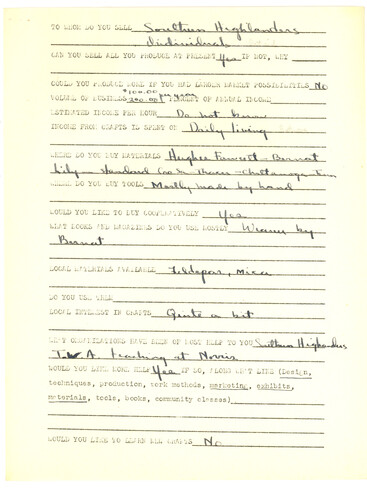 TO WHOM DO YOU SELL Southern Highlanders
Individual
CAN YOU SELL ALL YOU PRODUCE AT PRESENT Yes IF NOT, WHY
COULD YOU PRODUCE MORE IF YOU HAD LARGER MARKET POSSIBILITIES No
VOLUME OF BUSINESS $100.00 200.00 per year PERCENT OF ANNUAL INCOME
ESTIMATED INCOME PER HOUR Do not know
INCOME FROM CRAFTS IS SPENT ON Daily living
WHERE DO YOU BUY MATERIALS Hughes Fawcett - Bernat
Lily - Standard Coosa Thatcher - Chattanooga Tenn
WHERE DO YOU BUY TOOLS Mostly made by hand
WOULD YOU LIKE TO BUY COOPERATIVELY Yes
WHAT BOOKS AND MAGAZINES DO YOU USE MOSTLY Weaver by
Bernat
LOCAL MATERIALS AVAILABLE Feldspar, Mica
DO YOU USE THEM
LOCAL INTEREST IN CRAFTS Quite a bit
WHAT ORGANIZATIONS HAVE BEEN OF MOST HELP TO YOU Southern Highlanders
T.V.A. teaching at Norris
WOULD YOU LIKE MORE HELP Yes IF SO, ALONG WHAT LINE (Design,
techniques, production, work methods, marketing, exhibits,
materials, tools, books, community classes)
WOULD YOU LIKE TO LEARN NEW CRAFTS No